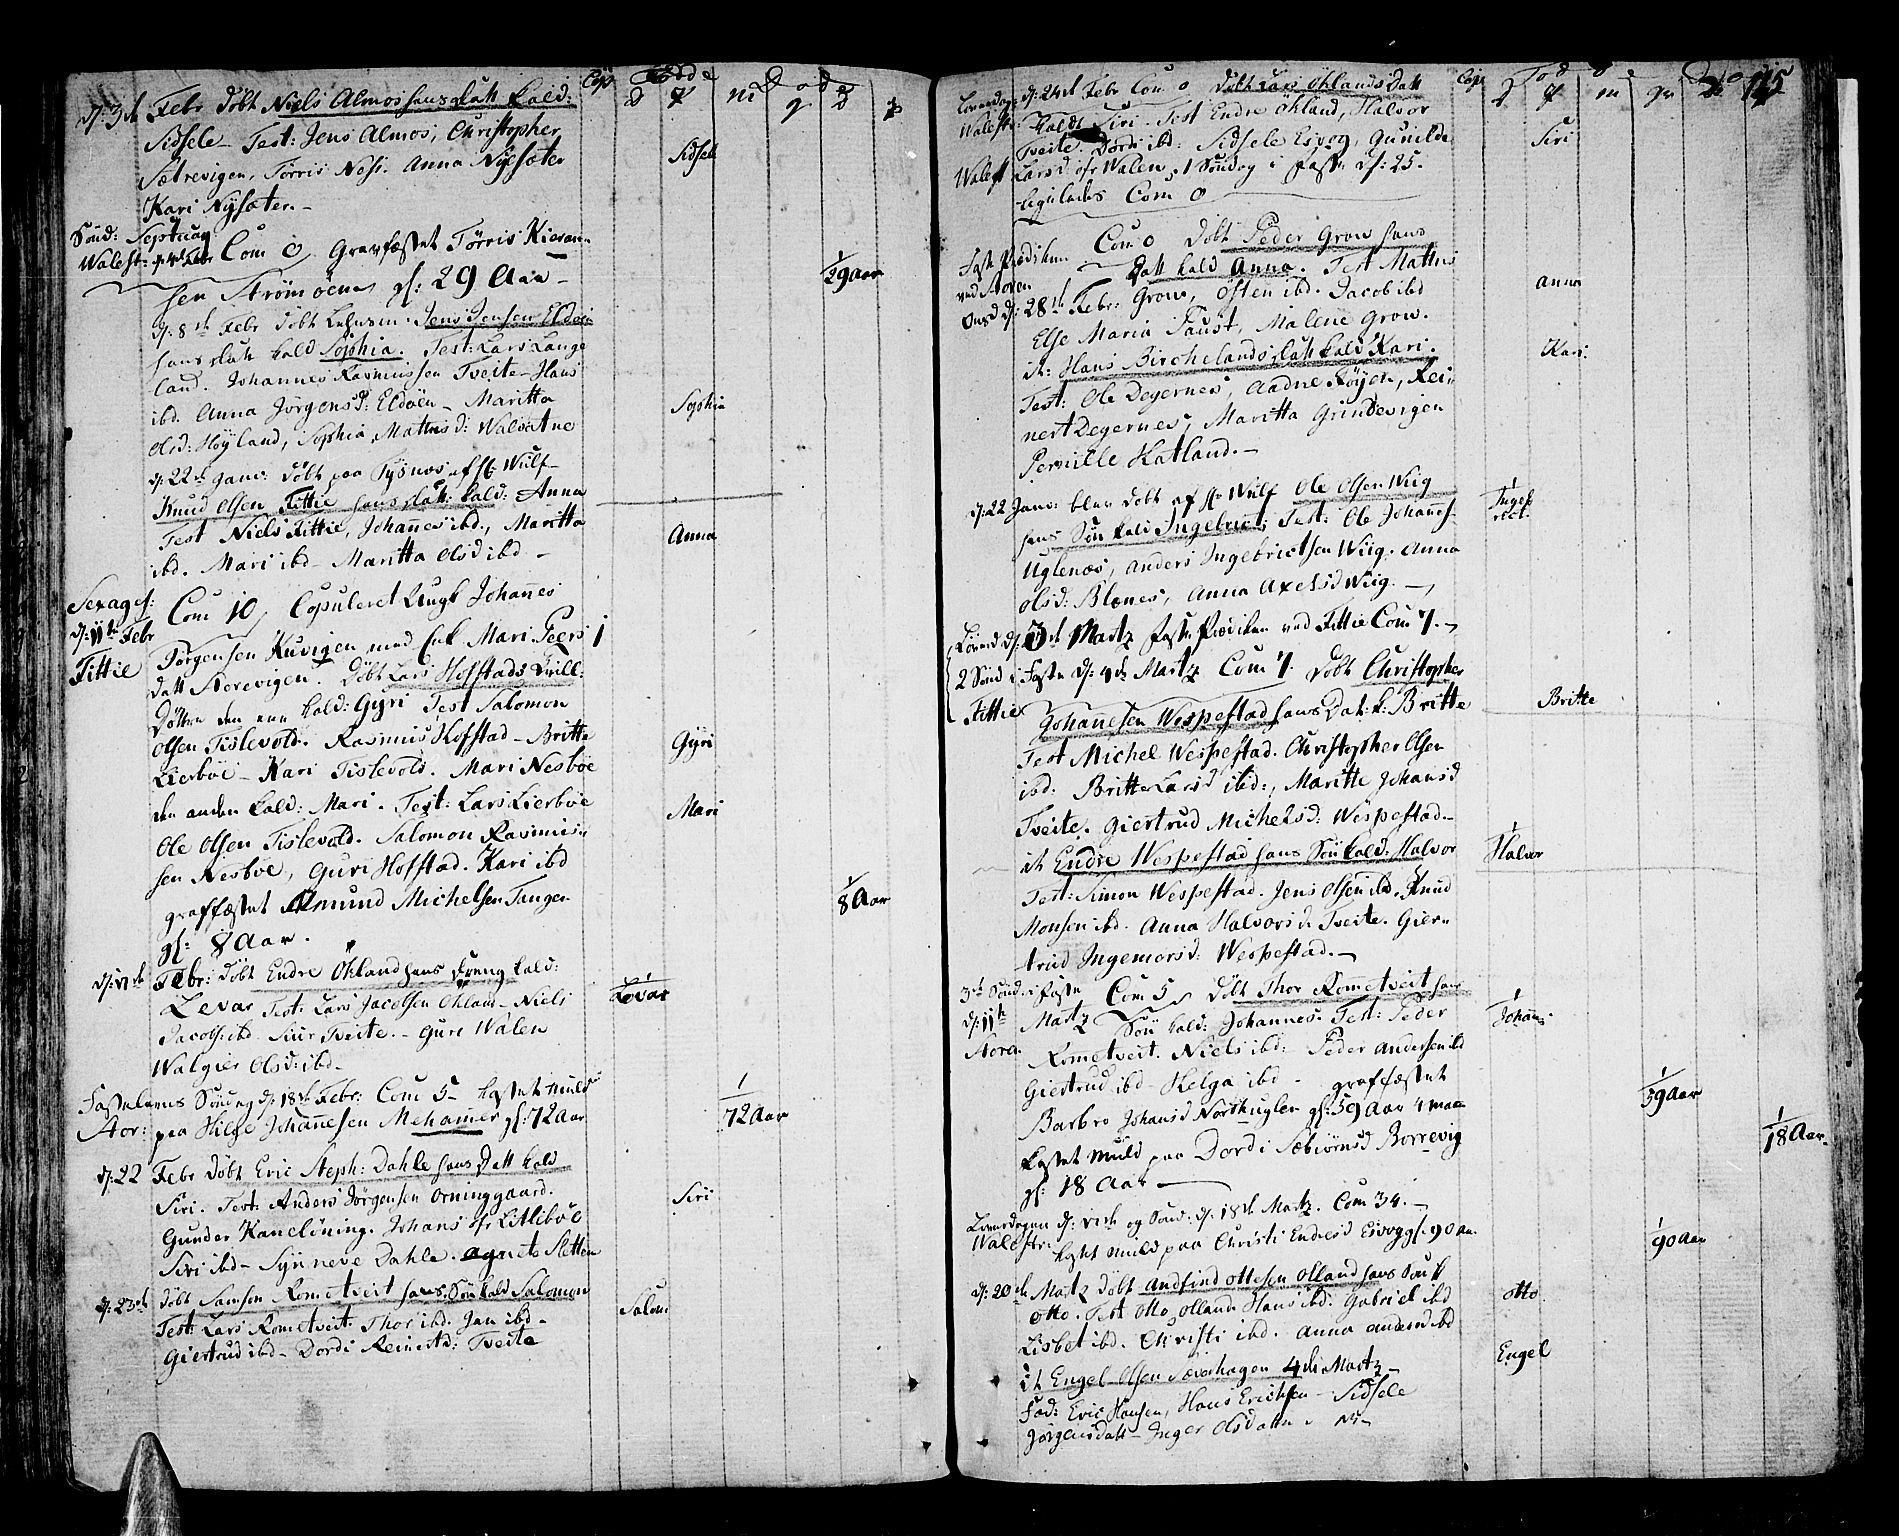 d: 3de Febr døbt Niels Almos hans datt kald:
Sidsele – Test: Jens Almos, Christopher
Sætrevigen, Tørris Nesi. Anna Nysæter
Kari Nysæter. –
Sidsel
Sønd: Septuag
Walest: d: 4de Febr Com 0 Gravfæstet Tørris
sen Strømøen gl: 29 Aar –
1
29 aar
d: 8de Febr døbt Jens Jensen Eldøen
hans datt kald Sophia. Test: Lars Lange
land. Johannes Rasmussen Tveite – Hans
ibd. Anna Jørgensd: Eldøen – Maritta
Olsd: Høyland, Sophia Mattisd: Walvatne
Sophia
d: 22de Janv: døbt paa Tysnes af Hr: Wulf –
Knud Olsen Fittie hans datt: kald: Anna
Test Niels Fittie, Johannes ibd., Maritta
ibd. Mari ibd – Maritta Olsd ibd –
Anna
Sexages:
d: 11te Febr
Fittie
Com 10, Copuleret Ungk Johannes
Jørgensen Kuvigen med Mari Peers 1
datt Norevigen. Døbt Lars Hofstads Tvill:
Døttre den ene kald: Gyri Test Salomon
Olsen Tislevold. Rasmus Hofstad – Britte
Lierbøe – Kari Tislevold. Mari Nesbøe
Gyri
den anden kald: Mari. Test: Lars Lierbøe
Ole Olsen Tislevold. Salomon Rasmus
sen Nesbøe, Guri Hofstad. Kari ibd
Mari
graffæstet Amund Michelsen Tangen
gl: 8 Aar.
1
8 Aar
d: 17de Febr: døbt Endre Økland hans dreng kald:
Levar Test: Lars Jacobsen Økland – Niels
Jacobs: ibd – Siur Tveite. – Guri Walen
Walgier Olsd: ibd –
1
Levar
Fastelavns Søndag d: 18de Febr: Com 5 – kastet Muld
Mor: paa Hilge Johannesen Mehamer gl: 72 aar
1
72 Aar
d: 22 Febr døbt Eric Steph: Dahle hans Datt kald
Siri. Test: Anders Jørgensen Orninggaard.
Gunder Kaneløning. Johans Litlebøe
Siri ibd – Synneve Dahle. Agnete Sletten
Siri
d: 23de døbt Samson Rometveit hans Søn kald Salomon
Test: Lars Rometveit. Thor ibd. Jan ibd –
Giertrud ibd – Dordi Tveite
Salom
115
Løverdag: d: 24de Febr Com 0 døbt Lars Øklands Datt
Walestr: kaldt Siri – Test Endre Økland, Halvor
Tveite. Dordi ibd: Sidsele Eivog, Gunilde
Larsd Walen, 1 Søndag i Faste d: 25.
Com 0
Siri
Faste Prædiken
ved Moren
Onsd d: 28de Febr:
Com 0 Døbt Peder Grow hans
Datt kald Anna. Test Mattis
Grow, Østen ibd. Jacob ibd
Else Maria Faust, Malene Grow.
anna
it: Hans Birchelands datt kald Kari.
Test: Ole Degernes, Aadne Røyen, Rei
nert Degernes, Maritta Grindevigen
Pernille Katland. –
Kari
d: 22 Janv: blev døbt af Hr Wulf Ole Olsen Wiig
hans Søn kald Ingebrict; Test: Ole Johannes
Uglenæs, Anders Ingebrictsen Wiig. Anna
Olsd: Blenes, Anna Axelsd Wiig. –
1
Ingeb
rict
Løverd d: 3de Martz Faste Prædiken ved Fittie Com 7. –
2 Sønd i Faste d: 4de Martz Com 7. Døbt Christopher
Fittie
Johanesen Wespestad hans Dat: k: Britte
Test Michel Wespestad. Christopher Olsen
ibd. Britte Larsd ibd:, Maritte Johansd
Tveite. Giertrud Michelsd: Wespestad –
Britte
it Endre Wespestad hans Søn kald: Halvor
Test: Simon Wespestad. Jens Olsen ibd. Knud
Monsen ibd. Anna Halvorsd Tveite. Gier
trud Ingemorsd: Wespestad. –
1
Halvor
3de Sønd: i Faste
d: 11te Martz
Com 5, Døbt Thor Rometveit hans
Søn kald: Johannes. Test: Peder
Rometveit. Niels ibd: Peder Andersen ibd
Giertrud ibd – Helga ibd – graffæstet
1
Johans
Barbro Johansd Norhuglen gl: 59 aar 4 maa
1
59 aar
kastet Muld paa Dordi Sæbiørnsd Borrevig
gl: 18 Aar –
1
18 Aar
Løverdagen d: 17de og Sønd: d: 18de Martz. Com 34. –
Walestr: kast Muld paa Christi Endresd Eivog gl: 90 aar
1
90 aar
d: 20de Martz døbt Andfind Ottesen Olland hans Søn k
Otto. Test Otto Olland Hans ibd: Gabriel ibd
Lisbet ibd. Christi ibd. Anna Andersd ibd
otto
it Engel Olsen Sæverhagen 4de Martz –
Fad: Eric Hansen, Hans Erichsen – Sidsele
Jørgensdatt – Inger Olsdatter
Engel